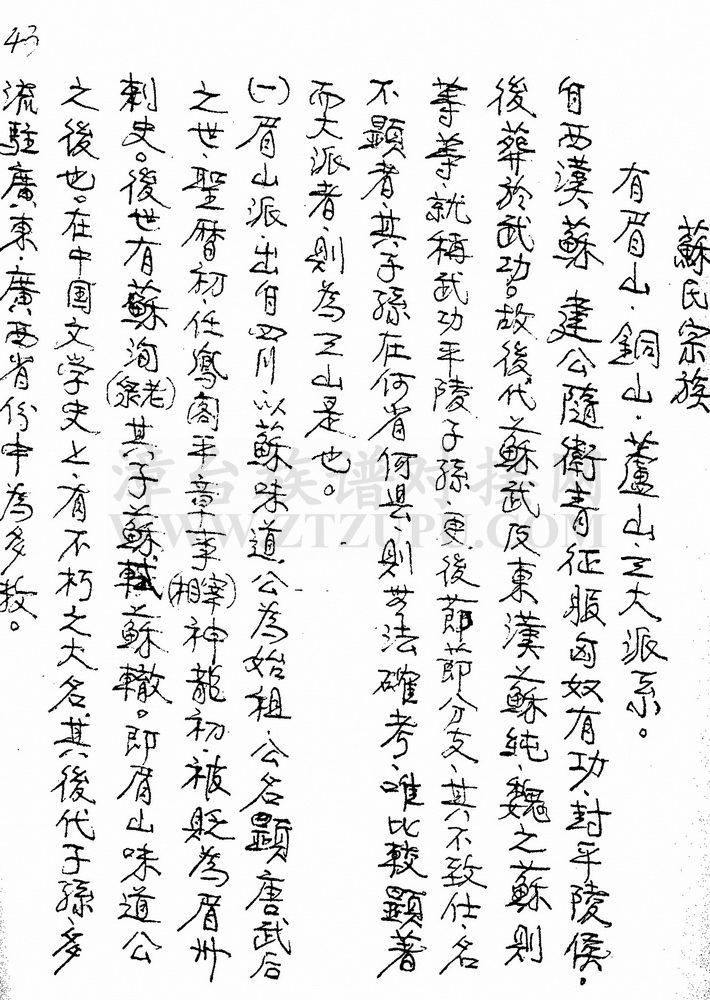 蘇氏宗族
有眉山、銅山、蘆山三大派系。
自西漢、蘇建公隨衛青征服匈奴有功、封平陵侯。
後葬於武功。故後代蘇武及東漢蘇純、魏之蘇則
等等、就稱武功平陵子孫、更後節節分支、其不致仕、名
不顯者、其子孫在何省何县、則無法確考、唯比較顯著
而大派者、則為三山是也。
(一)眉山派、出自四川以蘇味道公為始祖、公名顯唐武后
之世、聖曆初、任鳳阁平章事(宰相)神龍初、被貶為眉州
刺史。後世有蘇洵(老泉)其子蘇軾蘇轍。即眉山味道公
之後也。在中国文学史上、有不朽之大名、其後代子孫、多
流駐廣東、廣西省份中為多数。
43
漳台族谱对接网
WWW.ZTZUPU.COM